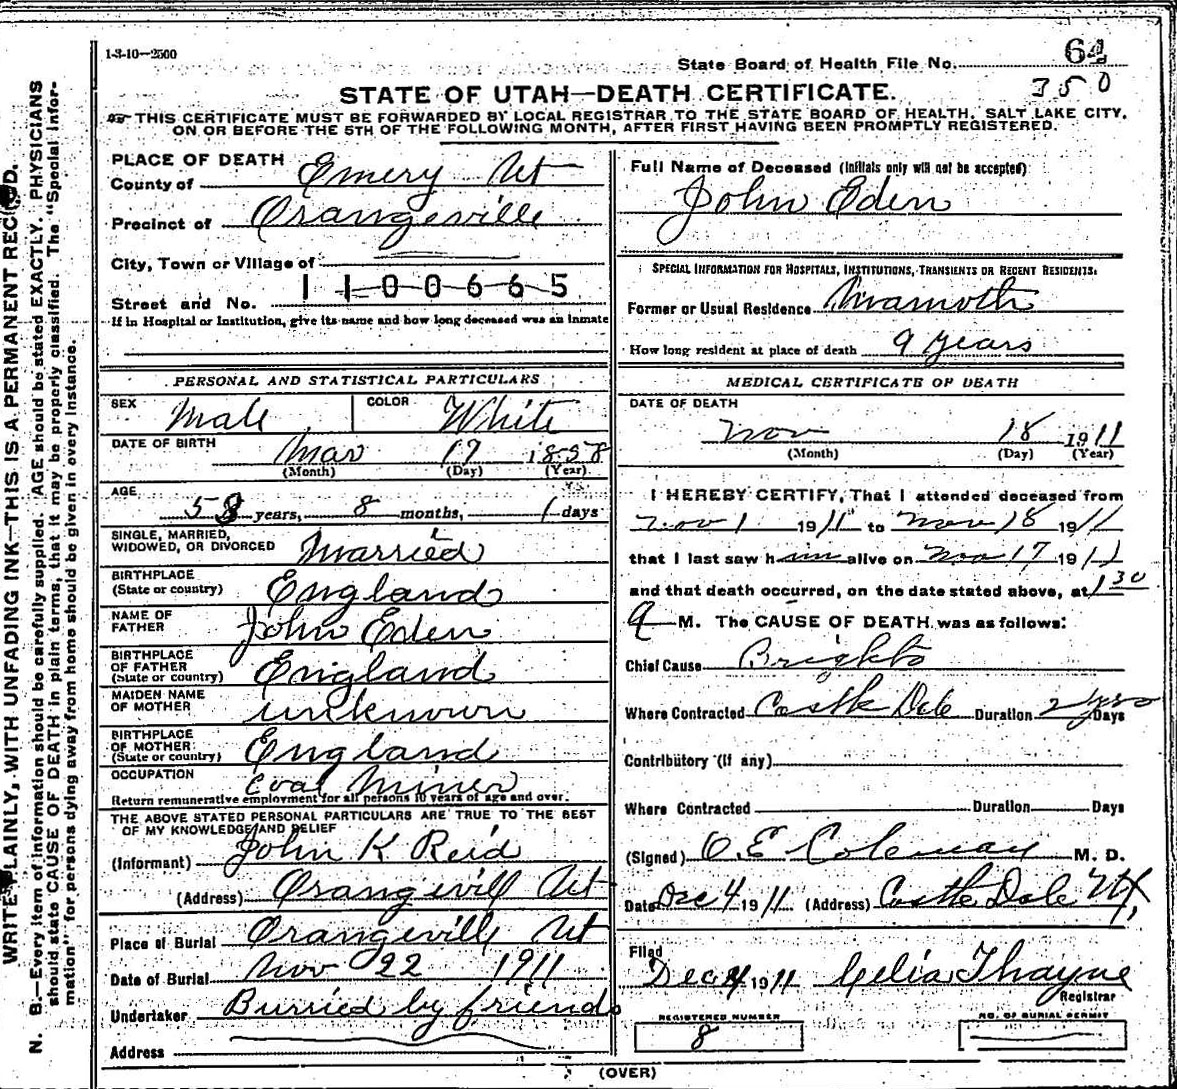 1-3-10—2500
State Board of Health File No. 64
350
STATE OF UTAH—DEATH CERTIFICATE.
THIS CERTIFICATE MUST BE FORWARDED BY LOCAL REGISTRAR TO THE STATE BOARD OF HEALTH, SALT LAKE CITY,
ON OR BEFORE THE 5TH OF THE FOLLOWING MONTH, AFTER FIRST HAVING BEEN PROMPTLY REGISTERED.
PLACE OF DEATH
County of Emery Ut
Precinct of Orangeville
City, Town or Village of
Street and No. 1100665
If in Hospital or Institution, give its name and how long deceased was an inmate
PERSONAL AND STATISTICAL PARTICULARS
SEX Male COLOR White
DATE OF BIRTH Mar 17 1858
(Month) (Day) (Year)
AGE
53 years, 8 months, 1 days
SINGLE, MARRIED,
WIDOWED, OR DIVORCED Married
BIRTHPLACE
(State or country) England
NAME OF
FATHER John Eden
BIRTHPLACE
OF FATHER
(State or country) England
MAIDEN NAME
OF MOTHER unknown
BIRTHPLACE
OF MOTHER
(State or country) England
OCCUPATION Coal Miner
Return remunerative employment for all persons 10 years of age and over.
THE ABOVE STATED PERSONAL PARTICULARS ARE TRUE TO THE BEST
OF MY KNOWLEDGE AND BELIEF
(Informant) John K Reid
(Address) Orangevill Ut
Place of Burial Orangevill Ut
Date of Burial Nov 22 1911
Undertaker Burried by friends
Address
Full Name of Deceased (Initials only will not be accepted)
John Eden
SPECIAL INFORMATION FOR HOSPITALS, INSTITUTIONS, TRANSIENTS OR RECENT RESIDENTS.
Former or Usual Residence Mamoth
How long resident at place of death 9 years
MEDICAL CERTIFICATE OF DEATH
DATE OF DEATH
Nov 18 1911
(Month) (Day) (Year)
I HEREBY CERTIFY, That I attended deceased from
Nov 1 1911 to Nov 18 1911
that I last saw him alive on Nov 17 1911
and that death occurred, on the date stated above, at 1 30
a M. The CAUSE OF DEATH was as follows:
Chief Cause Brights
Where Contracted Castle Dale Duration 2 yrs Days
Contributory (if any)
Where Contracted Duration Days
(Signed) O.E Coleman M. D.
Date Dec 4 1911 (Address) Castle Dale Ut,
Filed
Dec 4 1911 Celia Thayne
Registrar
REGISTERED NUMBER
8
NO. OF BURIAL PERMIT
(OVER)
WRITE PLAINLY, WITH UNFADING INK—THIS IS A PERMANENT RECORD.
N. B.—Every item of information should be carefully supplied. AGE should be stated EXACTLY. PHYSICIANS
should state CAUSE OF DEATH in plain terms, that it may be properly classified. The "Special Infor-
mation" for persons dying away from home should be given in every instance.